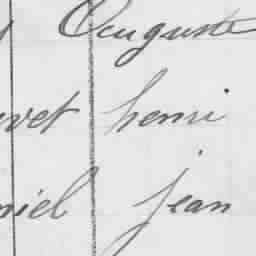 Auguste
vet henri
niel jean